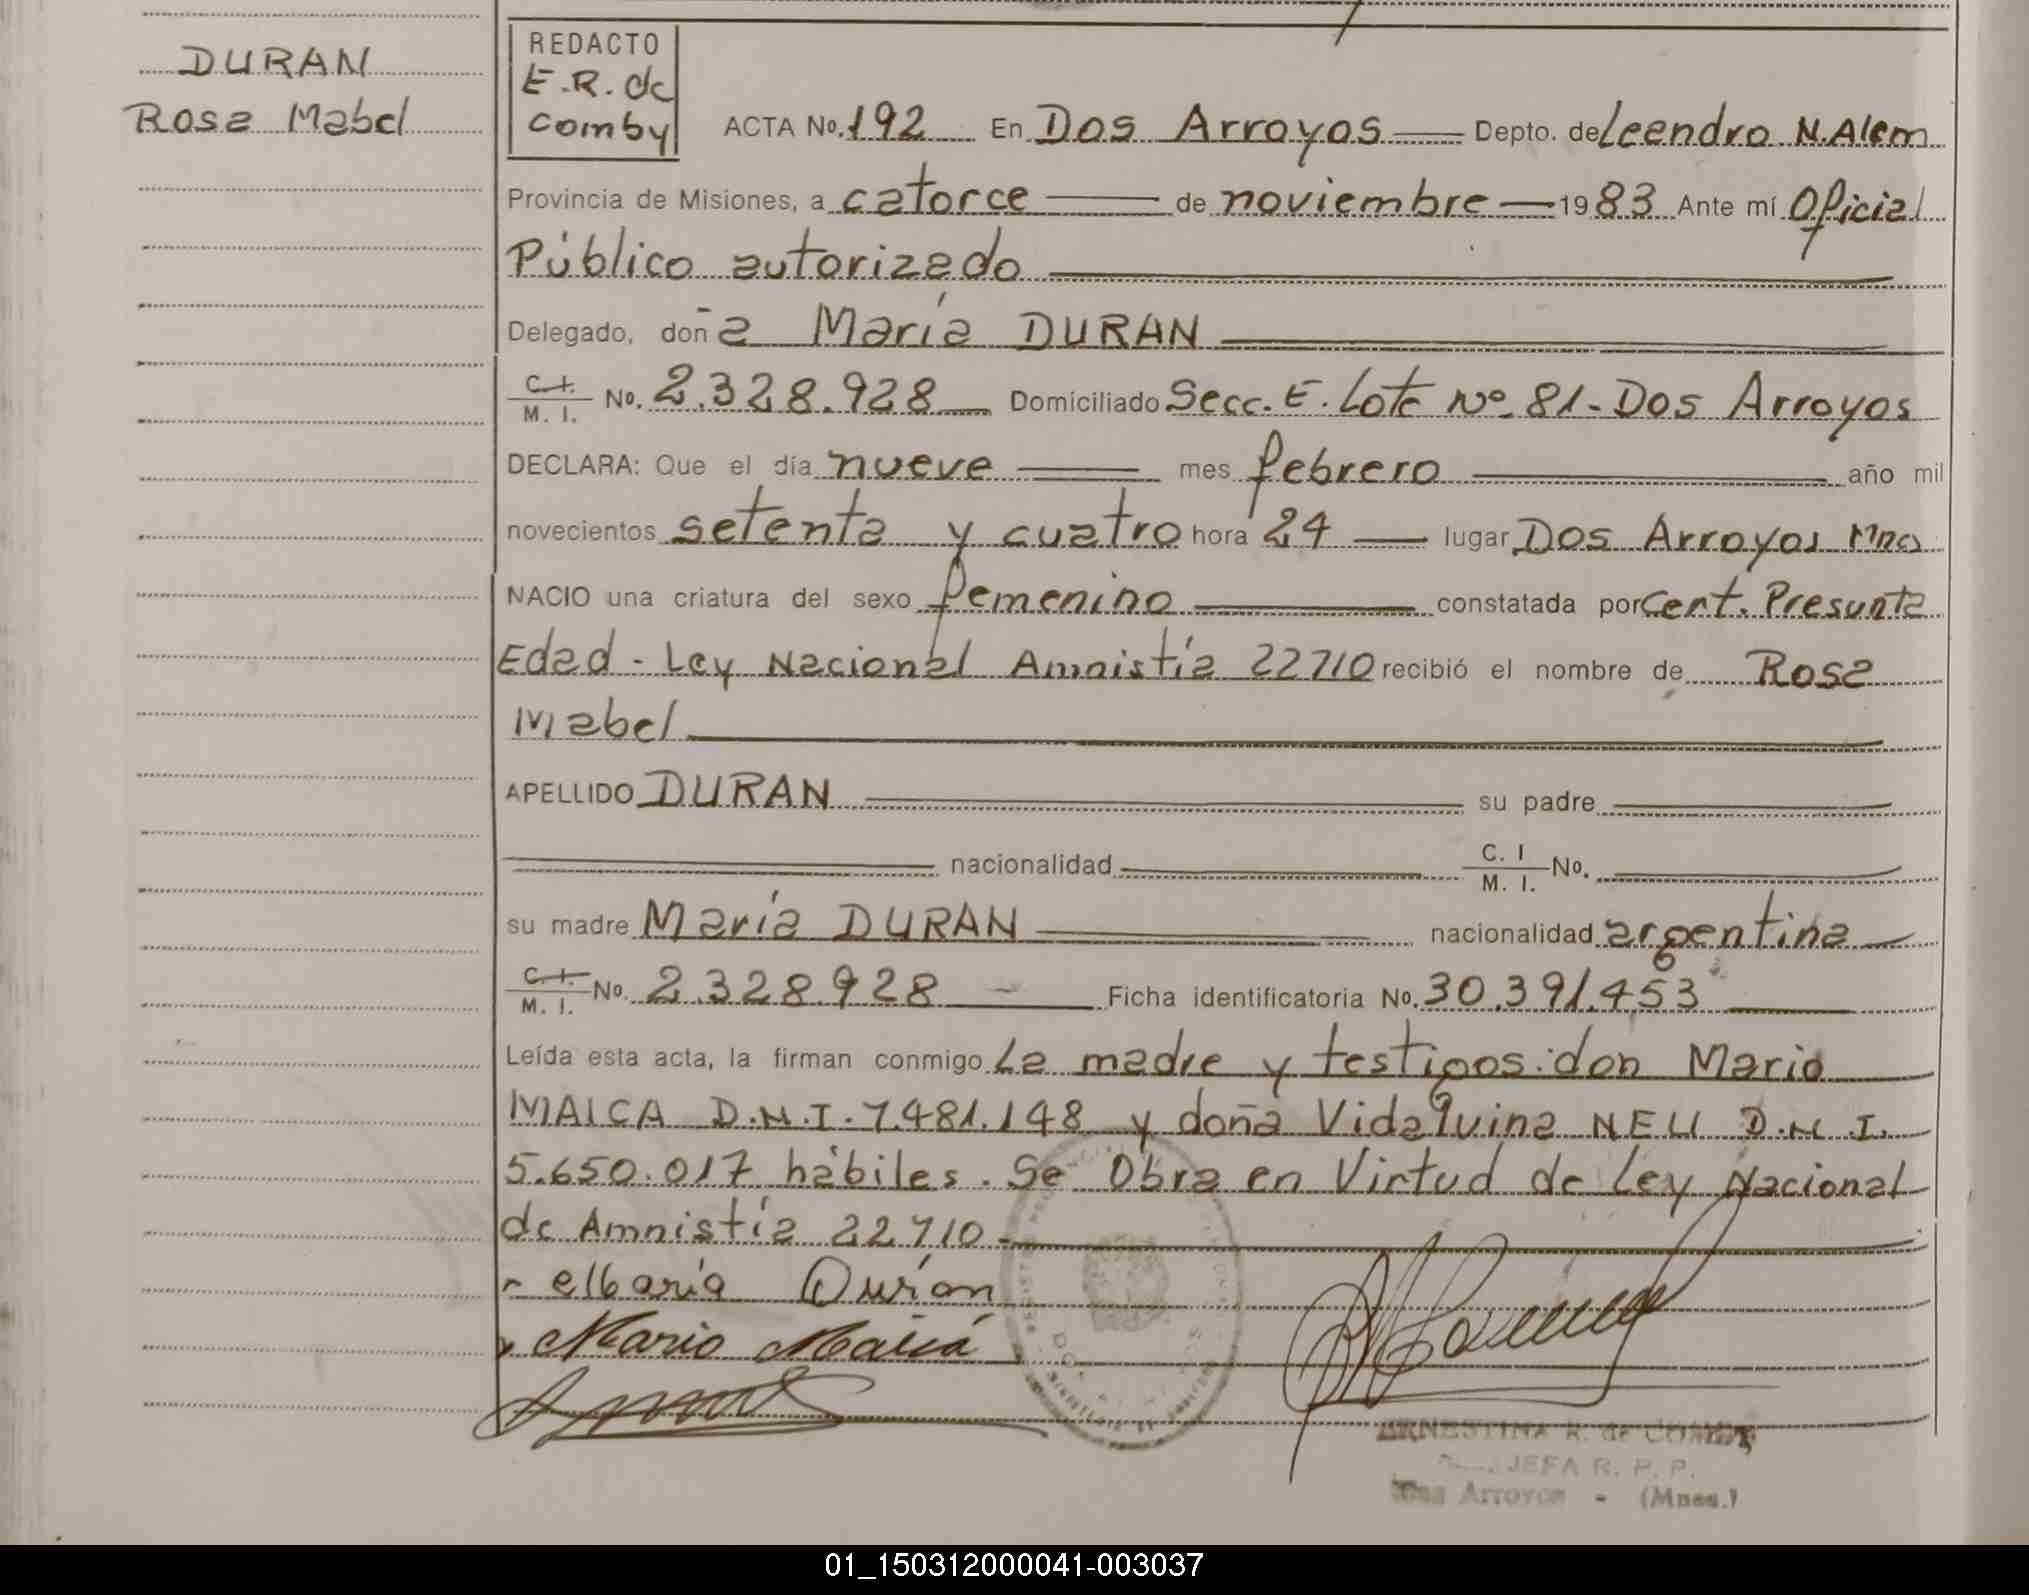 DURAN
Rosa Mabel
REDACTO
E.R. de
Comby
ACTA No. 192 En Dos Arroyos Depto. de Leandro N. Alem
Provincia de Misiones, a catorce de noviembre 1983 Ante mí Oficial
Público autorizado
Delegado, doña María DURAN
C.I. M. I. No. 2.328.928 Domiciliado Secc. E. Lote Nº 81- Dos Arroyos
DECLARA: Que el día nueve mes febrero año mil
novecientos setenta y cuatro hora 24 lugar Dos Arroyos Mnes
NACIO una criatura del sexo femenino constatada por Cert. Presunta
Edad - Ley Nacional Amnistía 22710 recibió el nombre de Rosa
Mabel
APELLIDO DURAN su padre
nacionalidad C. I M. I. No.
su madre María DURAN nacionalidad argentina
C.I. M. I. No. 2.328.928 Ficha identificatoria No. 30.391.453
Leída esta acta, la firman conmigo La madre y testigos: don Mario
MAICA D.N.I. 7.481.148 y doña Vidalvina NEU D.N.I.
5.650.017 hábiles. Se Obra en Virtud de Ley Nacional
de Amnistía 22710-
Duran
Mario Maica
ERNESTINA R. de COMBY
JEFA R. P. P.
Dos Arroyos - (Mnes.)
01_150312000041-003037